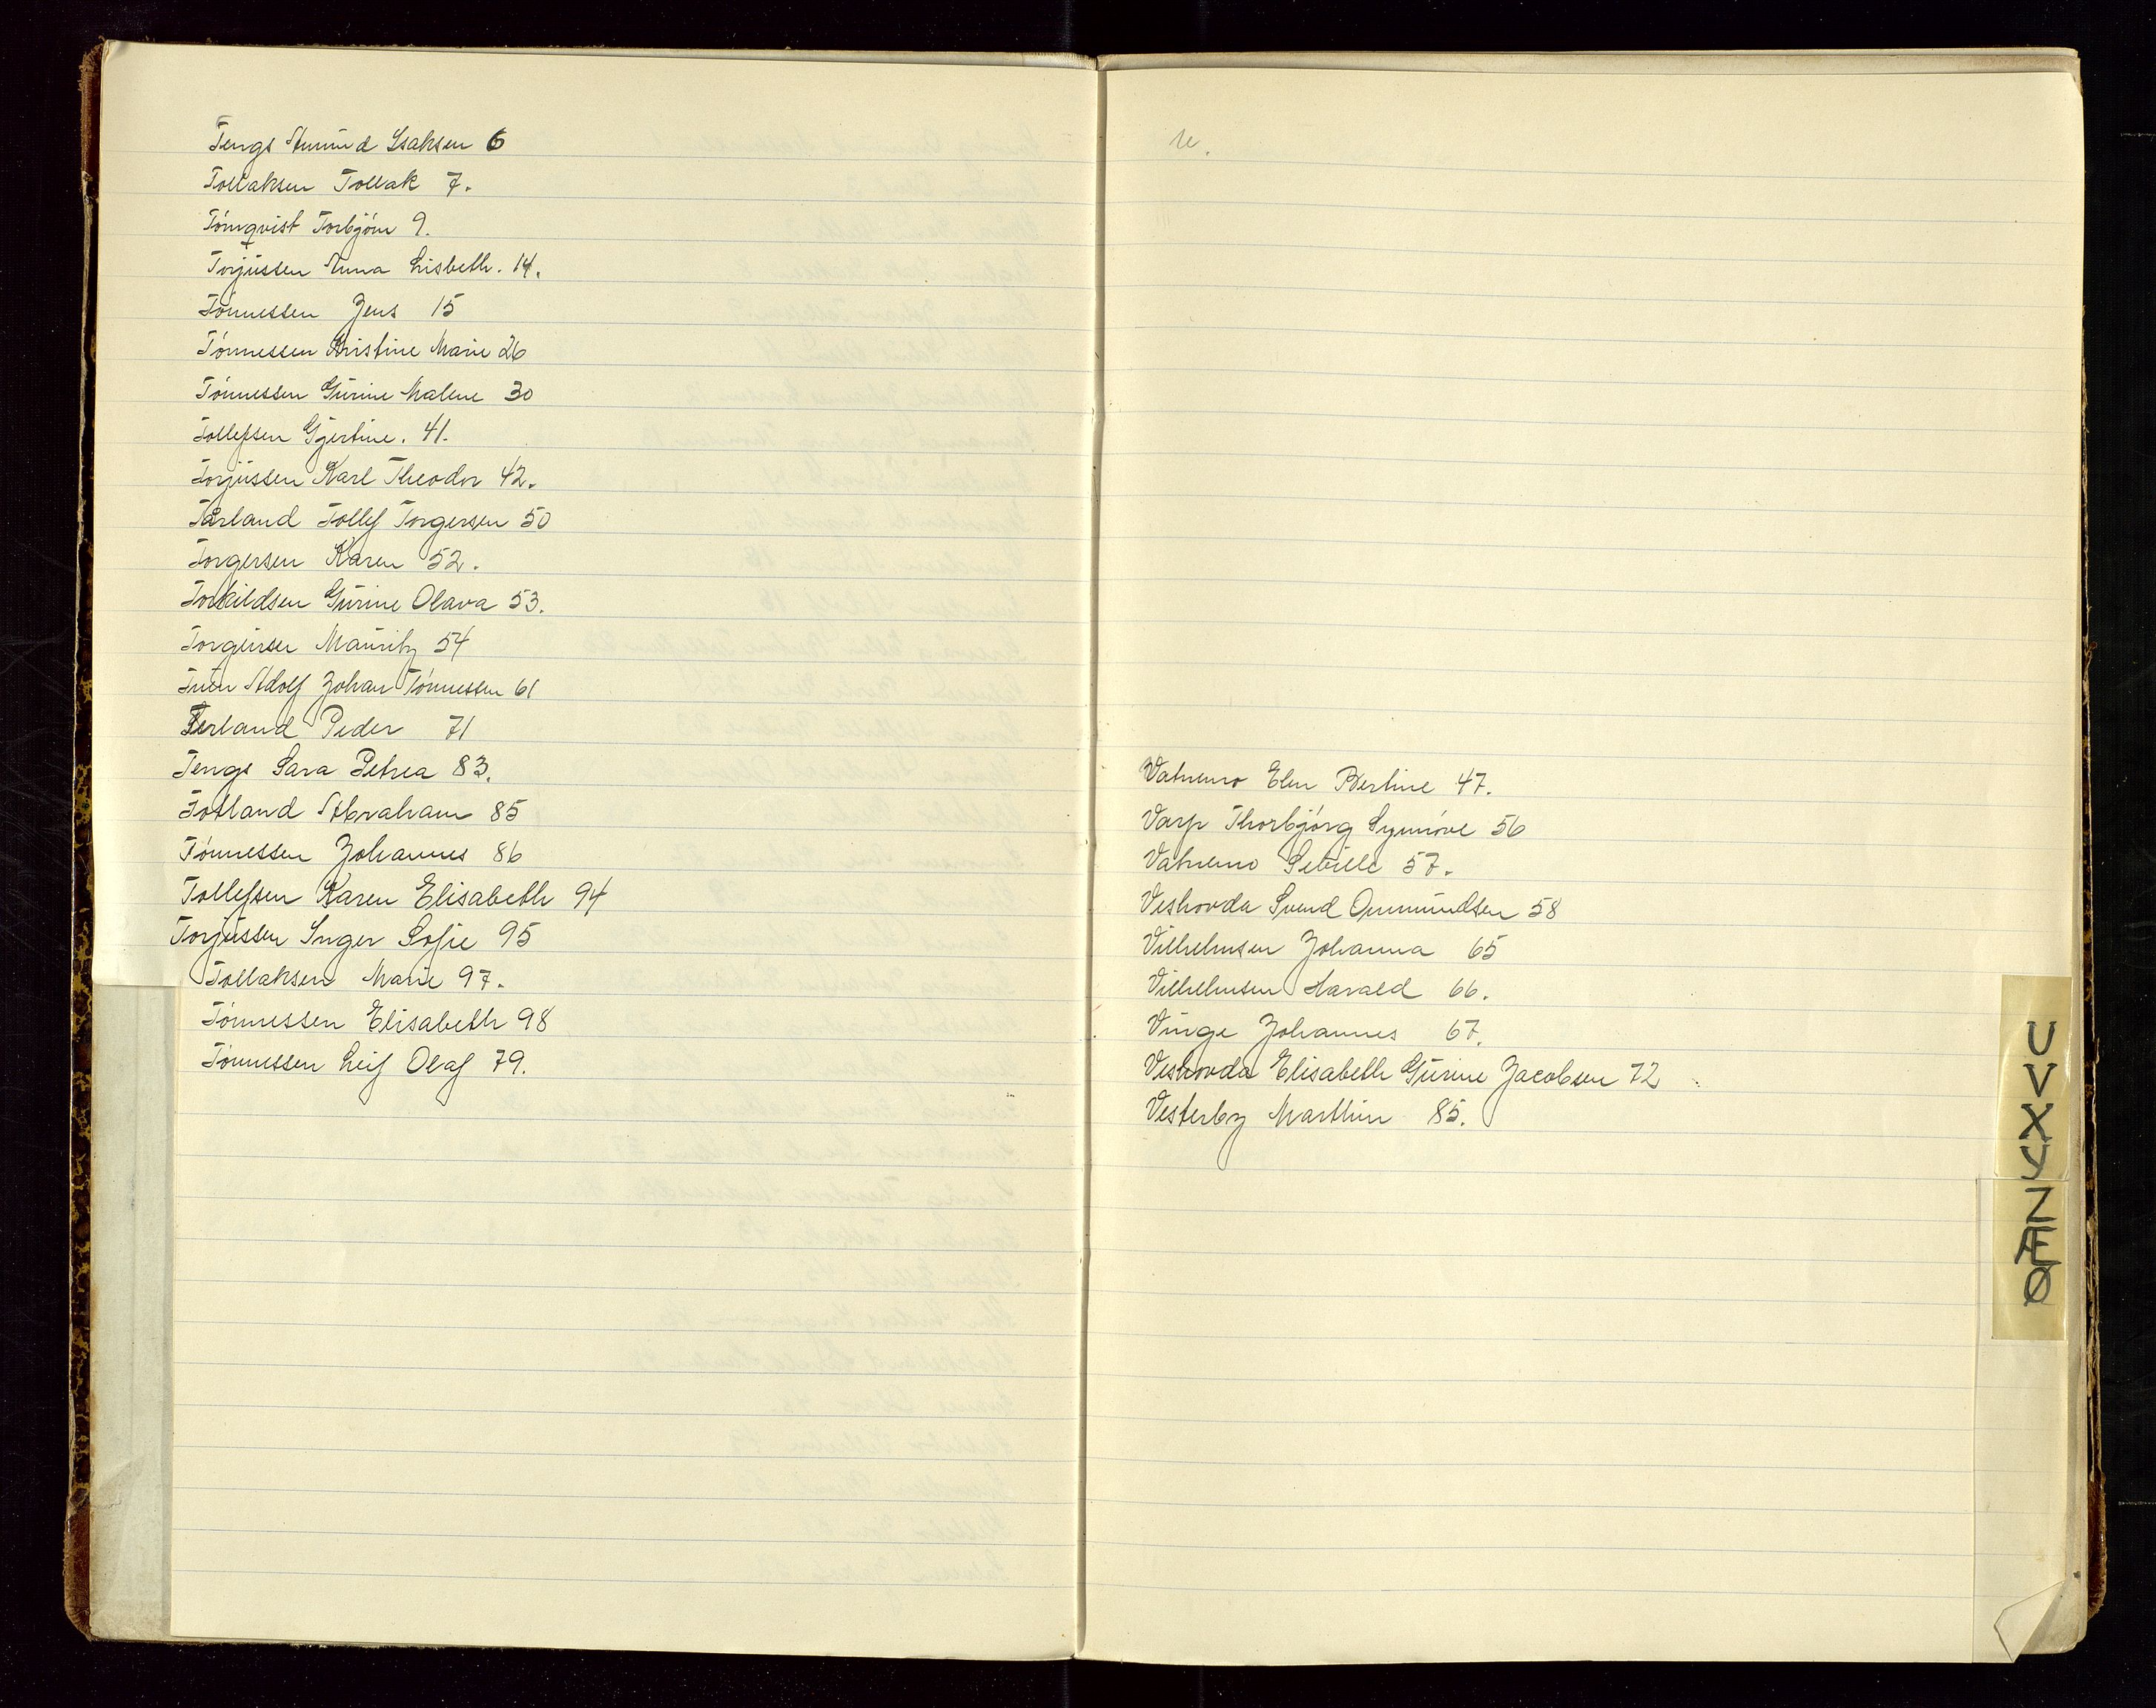 Tengs Amund Isaksen 6
Tollaksen Tollak 7.
Törnqvist Torbjörn 9.
Torjussen Anna Lisbeth. 14.
Tönnessen Jens 15
Tönnessen Kristine Marie 26
Tönnessen Gurine Malene 30
Tollefsen Gjertine. 41.
Torjussen Karl Theodor 42.
Tarland Tollef Torgersen 50
Torgersen Karen 52.
Torkildsen Gurine Olava 53.
Torgersen Mauritz 54
Tuen Adolf Johan Tönnessen 61
Terland Peder 71
Tengs Sara Petrea 83.
Totland Abraham 85
Tönnessen Johannes 86
Tollefsen Karen Elisabeth 94
Torjussen Inger Sofie 95
Tollaksen Marie 97.
Tönnessen Elisabeth 98
Tönnessen Leif Olaf 79.
u.
Vatnemo Elen Bertine 47.
Varp Thorbjörg Synnöve 56
Vatnemo Sebille 57.
Veshovda Svend Ommundsen 58
Vilhelmsen Johanna 65
Vilhelmsen Harald 66.
Vinge Johannes 67.
Veshovda Elisabeth Gurine Jacobsen 72
Vesterby Marthin 85.
U
V
X
Y
Z
Æ
Ø